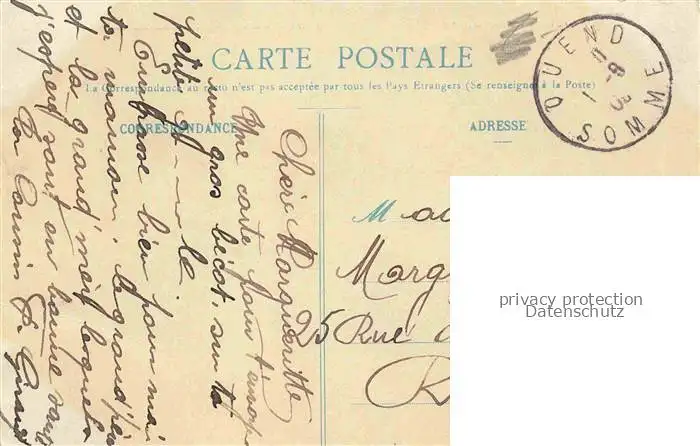 CARTE POSTALE
La Correspondance au recto n'est pas acceptée par tous les Pays Etrangers (Se renseigner à la Poste)
CORRESPONDANCE
ADRESSE
QUEND
SOMME
Chère Marguerite
Une carte pour t'
un gros bécot, sur ta
petite
Embrasse bien pour moi
ta maman, le grand père
et la grand'mère lesquels
j'espère sont en bonne santé
Ta Cousin
Marg
25 Rue
privacy protection
Datenschutz